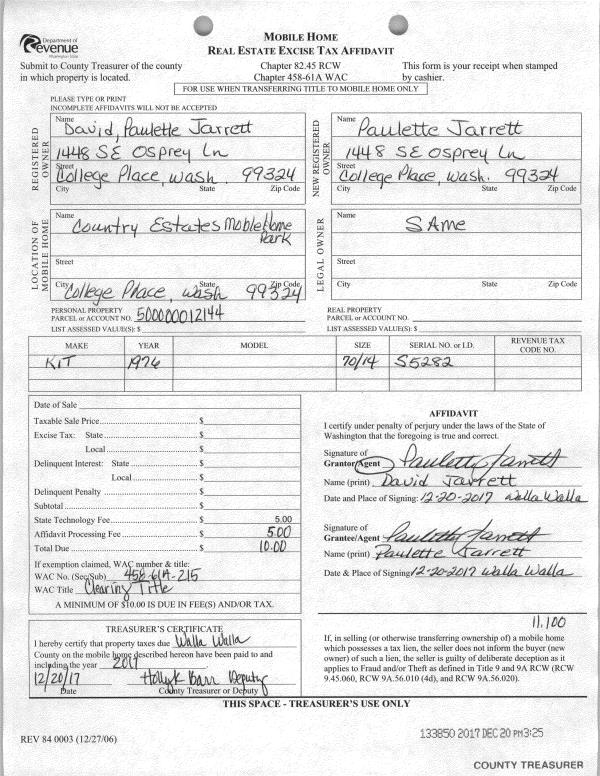 Department of
Revenue
Washington State
MOBILE HOME
REAL ESTATE EXCISE TAX AFFIDAVIT
Submit to County Treasurer of the county
in which property is located.
Chapter 82.45 RCW
Chapter 458-61A WAC
This form is your receipt when stamped
by cashier.
FOR USE WHEN TRANSFERRING TITLE TO MOBILE HOME ONLY
PLEASE TYPE OR PRINT
INCOMPLETE AFFIDAVITS WILL NOT BE ACCEPTED
REGISTERED OWNER
Name
David, Paulette Jarrett
1448 SE Osprey Ln
Street
College Place, Wash. 99324
City State Zip Code
NEW REGISTERED OWNER
Name
Paulette Jarrett
1448 SE Osprey Ln
Street
College Place, Wash. 99324
City State Zip Code
LOCATION OF MOBILE HOME
Name
Country Estates Moble Home
Park
Street
College Place, Wash 99324
City State Zip Code
LEGAL OWNER
Name
SAme
Street
City State Zip Code
PERSONAL PROPERTY
PARCEL or ACCOUNT NO. 500000012144
LIST ASSESSED VALUE(S): $
REAL PROPERTY
PARCEL or ACCOUNT NO.
LIST ASSESSED VALUE(S): $
MAKE YEAR MODEL SIZE SERIAL NO. or I.D. REVENUE TAX CODE NO.
KIT 1976 70/14 S5282
Date of Sale
Taxable Sale Price $
Excise Tax: State $
Local $
Delinquent Interest: State $
Local $
Delinquent Penalty $
Subtotal $
State Technology Fee $ 5.00
Affidavit Processing Fee $ 5.00
Total Due $ 10.00
If exemption claimed, WAC number & title:
WAC No. (Sec/Sub) 458-61A-215
WAC Title Clearing Title
A MINIMUM OF $10.00 IS DUE IN FEE(S) AND/OR TAX.
AFFIDAVIT
I certify under penalty of perjury under the laws of the State of
Washington that the foregoing is true and correct.
Signature of
Grantor/Agent Paulette Jarrett
Name (print) David Jarrett
Date and Place of Signing: 12-20-2017 Walla Walla
Signature of
Grantee/Agent Paulette Jarrett
Name (print) Paulette Jarrett
Date & Place of Signing: 12-20-2017 Walla Walla
TREASURER'S CERTIFICATE
I hereby certify that property taxes due Walla Walla
County on the mobile home described hereon have been paid to and
including the year 2017
12/20/17 Hollyk Barr Deputy
Date County Treasurer or Deputy
11,100
If, in selling (or otherwise transferring ownership of) a mobile home
which possesses a tax lien, the seller does not inform the buyer (new
owner) of such a lien, the seller is guilty of deliberate deception as it
applies to Fraud and/or Theft as defined in Title 9 and 9A RCW (RCW
9.45.060, RCW 9A.56.010 (4d), and RCW 9A.56.020).
THIS SPACE - TREASURER'S USE ONLY
REV 84 0003 (12/27/06)
133850 2017 DEC 20 PM3:25
COUNTY TREASURER